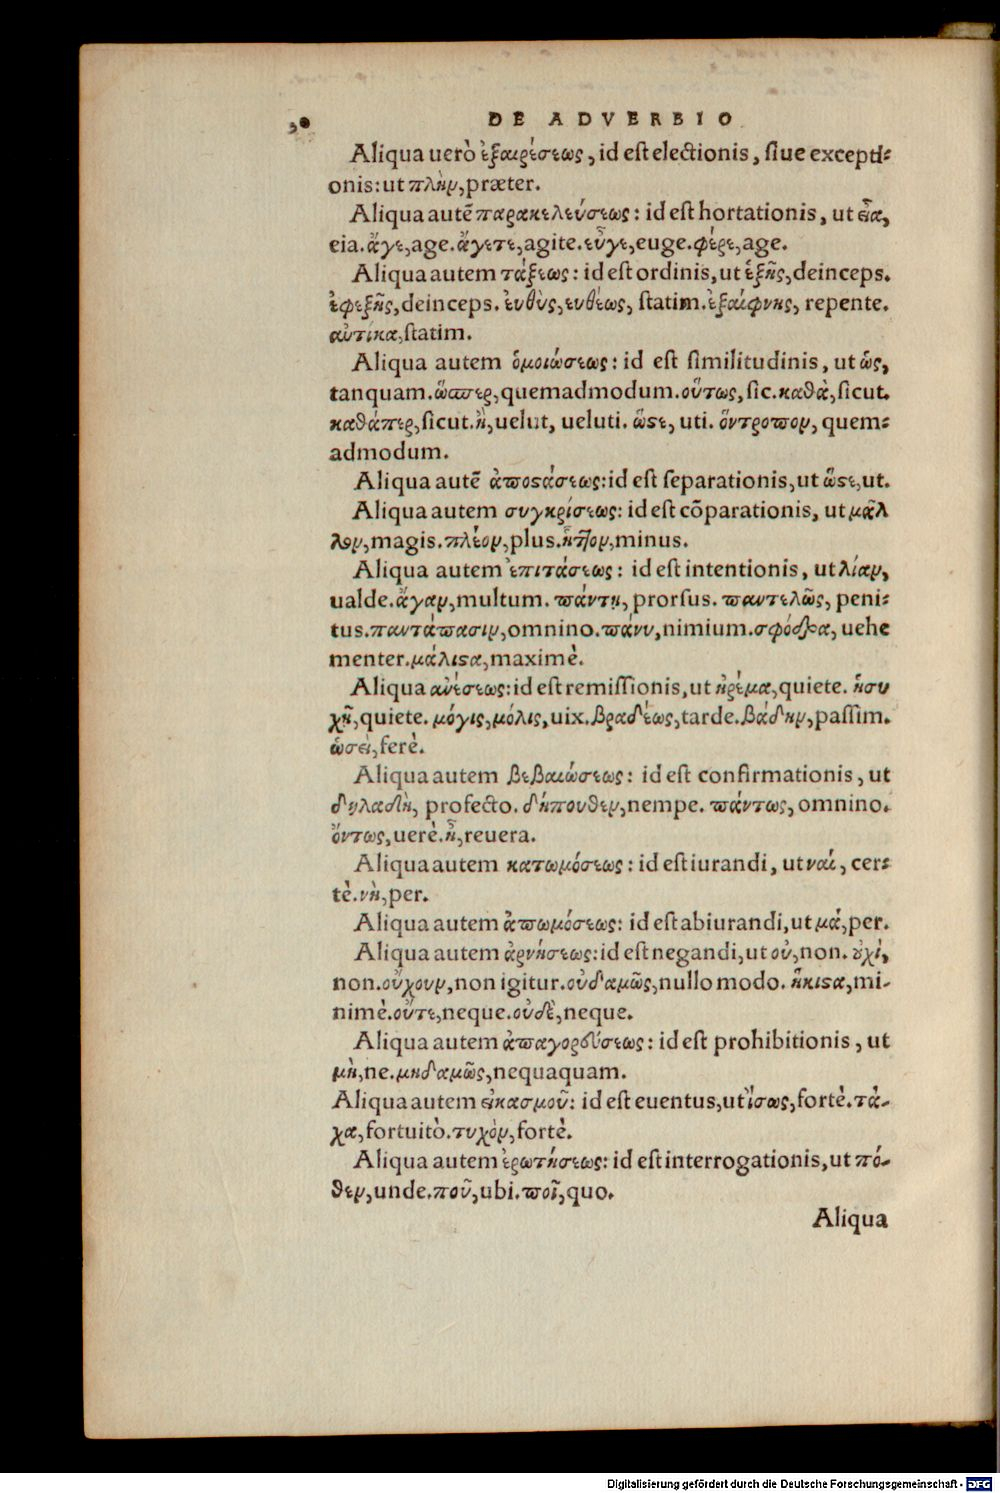 30
DE ADVERBIO
Aliqua uerò ἐξαιρέσεως, id est electionis, siue excepti-
onis: ut πλὴν, præter.
Aliqua autē παρακελεύσεως: id est hortationis, ut εἶα,
eia. ἄγε, age. ἄγετε, agite. εὖγε, euge. φέρε, age.
Aliqua autem τάξεως: id est ordinis, ut ἑξῆς, deinceps.
ἐφεξῆς, deinceps. ἐυθὺς, ευθέως, statim. ἐξαίφνης, repente.
αὐτίκα, statim.
Aliqua autem ὁμοιώσεως: id est similitudinis, ut ὡς,
tanquam. ὥσπερ, quemadmodum. οὕτως, sic. καθὰ, sicut.
καθάπερ, sicut. ἢ, uelut, ueluti. ὥστε, uti. ὅντροπον, quem-
admodum.
Aliqua autē ἀποστάσεως: id est separationis, ut ὥστε, ut.
Aliqua autem συγκρίσεως: id est cōparationis, ut μᾶλ
λον, magis. πλέον, plus. ἧττον, minus.
Aliqua autem ἐπιτάσεως: id est intentionis, ut λίαν,
ualde. ἄγαν, multum. πάντη, prorsus. παντελῶς, peni-
tus. παντάπασιν, omnino. πάνυ, nimium. σφόδρα, uehe
menter. μάλιστα, maximè.
Aliqua ανέσεως: id est remissionis, ut ἠρέμα, quiete. ἡσυ
χῆ, quiete. μόγις, μόλις, uix. βραδέως, tarde. βάδην, passim.
ὡσεὶ, ferè.
Aliqua autem βεβαιώσεως: id est confirmationis, ut
δηλαδὴ, profecto. δήπουθεν, nempe. πάντως, omnino.
ὄντως, uerè. ἦ, reuera.
Aliqua autem κατωμόσεως: id est iurandi, ut ναί, cer-
tè. νὴ, per.
Aliqua autem ἀπωμόσεως: id est abiurandi, ut μά, per.
Aliqua autem ἀρνήσεως: id est negandi, ut οὐ, non. οὐχί,
non. οὔχουν, non igitur. οὐδαμῶς, nullo modo. ἥκιστα, mi-
nimè. οὔτε, neque. οὐδὲ, neque.
Aliqua autem ἀπαγορεύσεως: id est prohibitionis, ut
μὴ, ne. μηδαμῶς, nequaquam.
Aliqua autem εἰκασμοῦ: id est euentus, ut ἴσως, fortè. τά-
χα, fortuitò. τυχὸν, fortè.
Aliqua autem ἐρωτήσεως: id est interrogationis, ut πό-
θεν, unde. ποῦ, ubi. ποῖ, quo.
Aliqua
Digitalisierung gefördert durch die Deutsche Forschungsgemeinschaft - DFG